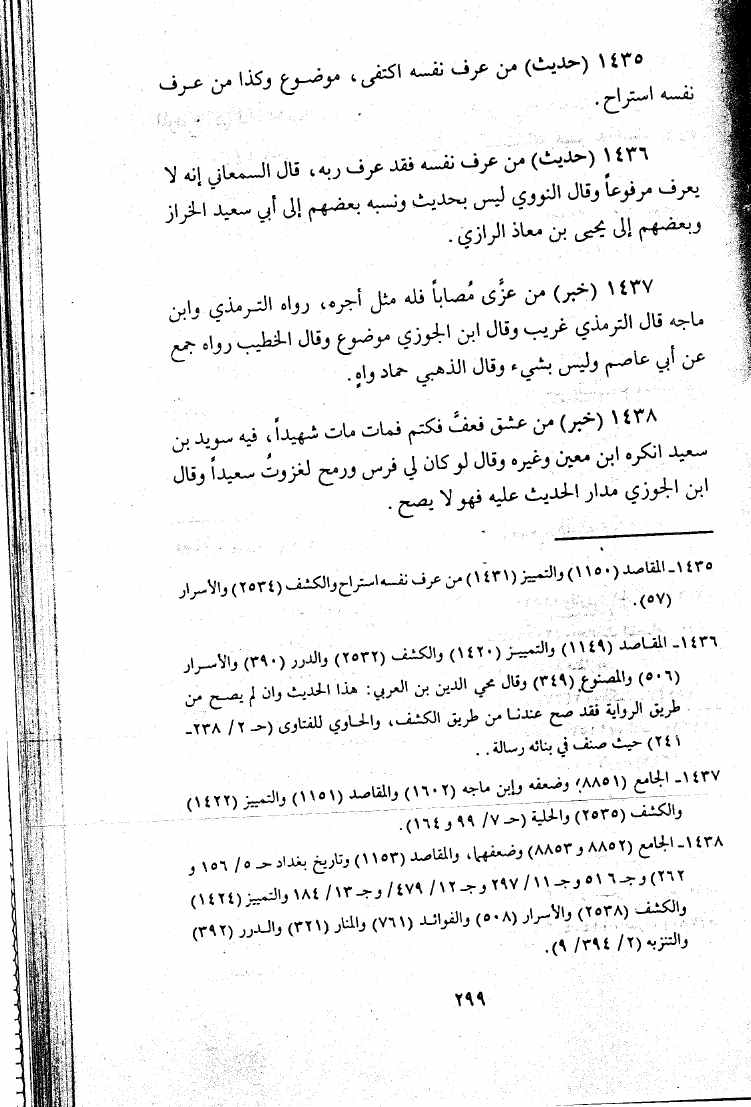 ١٤٣٥ (حديث) من عرف نفسه اكتفى، موضوع وكذا من عرف
نفسه استراح.
١٤٣٦ (حديث) من عرف نفسه فقد عرف ربه، قال السمعاني إنه لا
يعرف مرفوعاً وقال النووي ليس بحديث ونسبه بعضهم إلى أبي سعيد الخراز
وبعضهم إلى يحيى بن معاذ الرازي.
١٤٣٧ (خبر) من عزَّى مُصاباً فله مثل أجره، رواه الترمذي وابن
ماجه قال الترمذي غريب وقال ابن الجوزي موضوع وقال الخطيب رواه جمع
عن أبي عاصم وليس بشيء وقال الذهبي حماد واهٍ.
١٤٣٨ (خبر) من عشق فعفَّ فكتم فمات مات شهيداً، فيه سويد بن
سعيد انكره ابن معين وغيره وقال لو كان لي فرس ورمح لغزوتُ سعيداً وقال
ابن الجوزي مدار الحديث عليه فهو لا يصح.
١٤٣٥ـ المقاصد (١١٥٠) والتمييز (١٤٣١) من عرف نفسه استراح والكشف (٢٥٣٤) والأسرار
(٥٧).
١٤٣٦ـ المقاصد (١١٤٩) والتمييز (١٤٢٠) والكشف (٢٥٣٢) والدرر (٣٩٠) والأسرار
(٥٠٦) والمصنوع (٣٤٩) وقال محي الدين بن العربي: هذا الحديث وان لم يصح من
طريق الرواية فقد صح عندنا من طريق الكشف، والحاوي للفتاوى (حـ ٢/ ٢٣٨ـ
٢٤١) حيث صنف في بنائه رسالة. .
١٤٣٧ـ الجامع (٨٨٥١) وضعفه وإبن ماجه (١٦٠٢) والمقاصد (١١٥١) والتمييز (١٤٢٢)
والكشف (٢٥٣٥) والحلية (حـ ٧/ ٩٩ و ١٦٤).
١٤٣٨ـ الجامع (٨٨٥٢ و ٨٨٥٣) وضعفهما، والمقاصد (١١٥٣) وتاريخ بغداد حـ ٥/ ١٥٦ و
٢٦٢) و جـ ٥١٦ و جـ ١١/ ٢٩٧ و جـ ١٢/ ٤٧٩/ و جـ ١٣/ ١٨٤ والتمييز (١٤٢٤)
والكشف (٢٥٣٨) والأسرار (٥٠٨) والفوائد (٧٦١) والمنار (٣٢١) والدرر (٣٩٢)
والتنزيه (٢/ ٣٩٤/ ٩).
٢٩٩